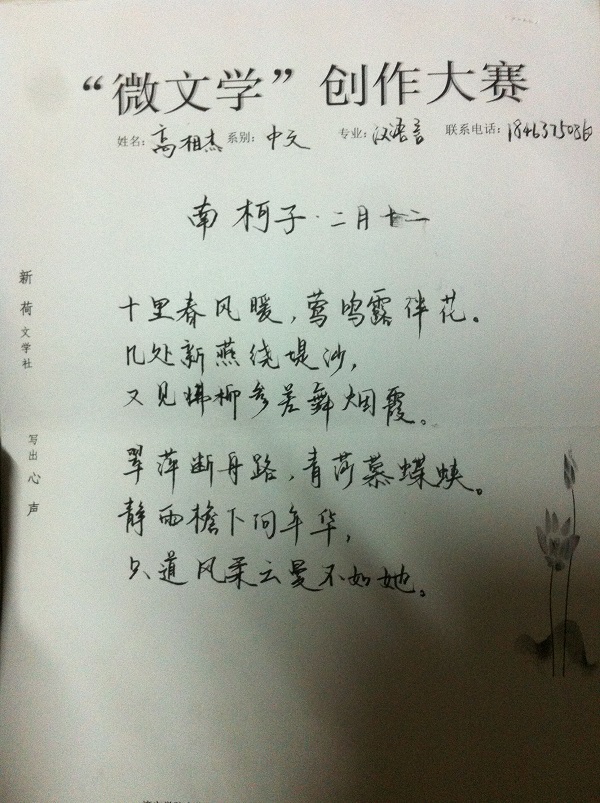 “微文学”创作大赛
姓名：高相杰 系别：中文 专业：汉语言 联系电话：18463750860
南柯子·二月十二
十里春风暖，莺鸣露伴花。
几处新燕绕堤沙，
又见拂柳参差舞烟霞。
翠萍断舟路，青莎慕蝶蛱。
静雨檐下问年华，
只道风柔云曼不如她。
新荷文学社
写出心声